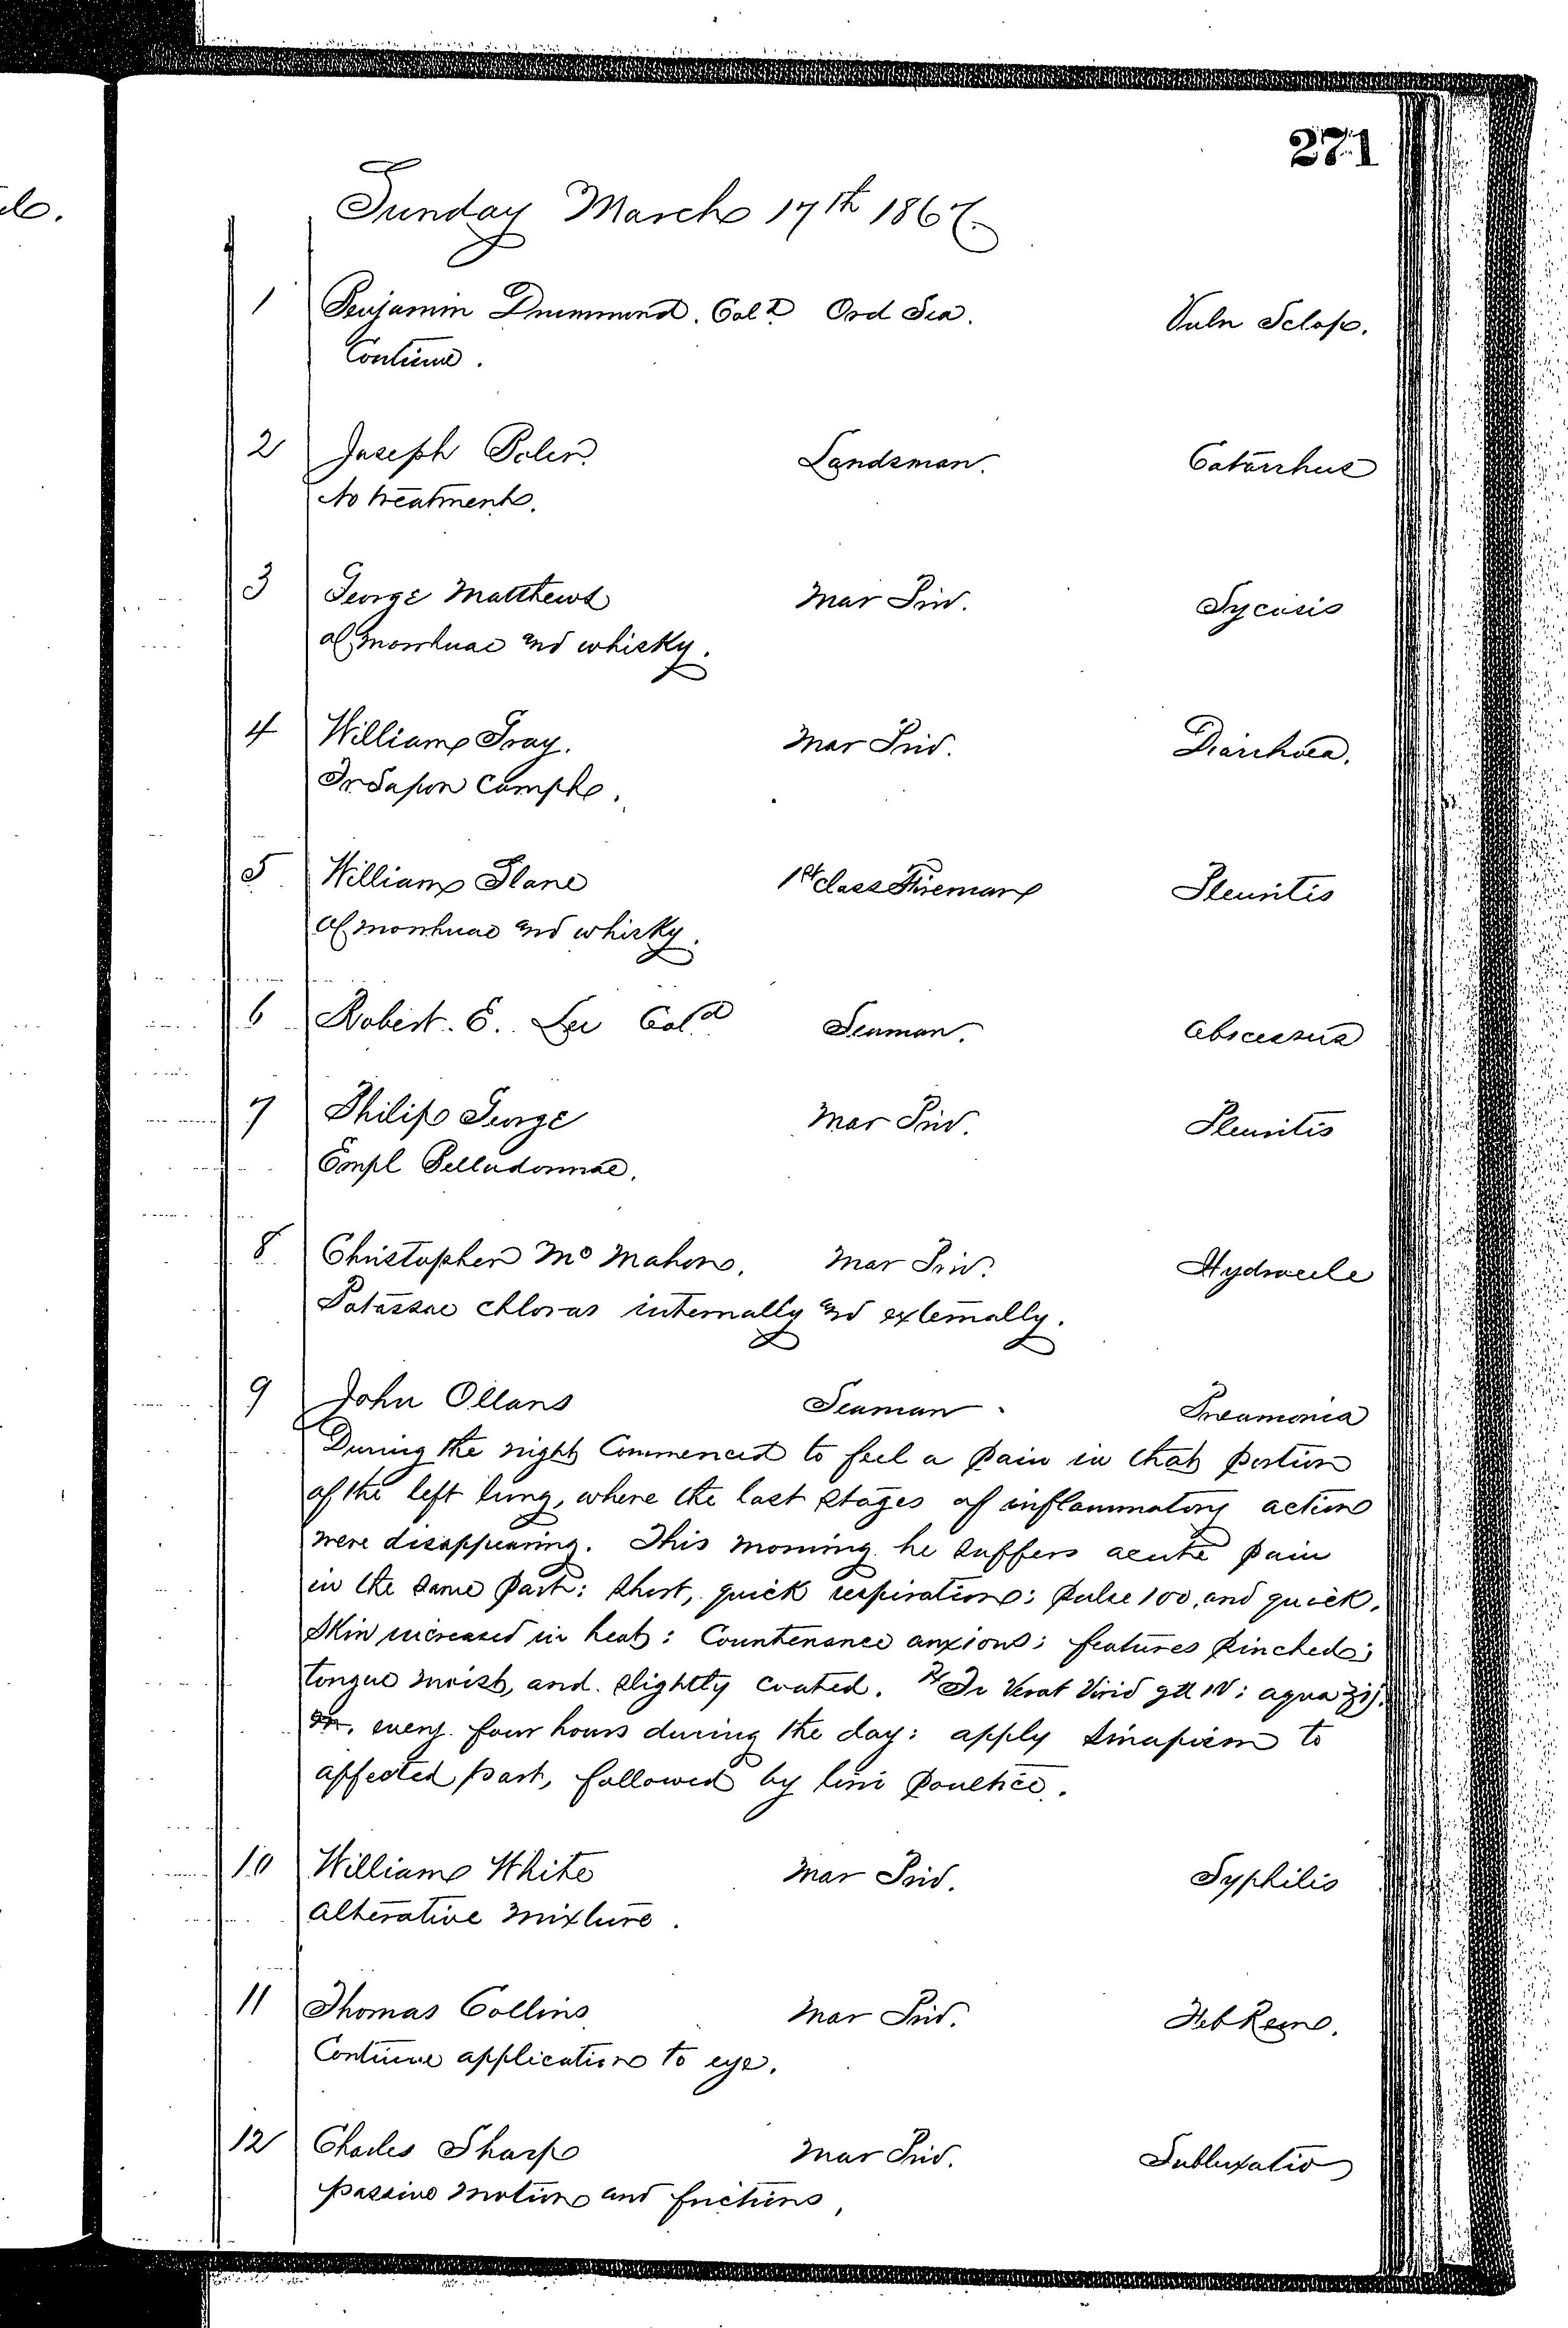 271
Sunday March 17th 1867.
1 Benjamin Drummond. Cold Ord Sea. Vuln Sclop.
Continue.
2 Joseph Boler. Landsman. Catarrhus
No treatment.
3 George Matthews Mar Priv. Sycosis
Ol morrhuae and whisky.
4 William Gray. Mar Priv. Diarrhoea.
Tr Sapon Camph.
5 William Slane 1st class Fireman Pleuritis
Ol morrhuae and whisky.
6 Robert. E. Lee Cold Seaman. Abscessus
7 Philip George Mar Priv. Pleuritis
Empl Belladonnae.
8 Christopher Mc Mahon. Mar Priv. Hydrocele
Potassae chloras internally and externally.
9 John Ollans Seaman. Pneumonia
During the night commenced to feel a pain in that portion
of the left lung, where the last stages of inflammatory action
were disappearing. This morning he suffers acute pain
in the same part: short, quick respiration: pulse 100, and quick.
Skin increased in heat: Countenance anxious: features pinched:
tongue moist, and slightly coated. ℞ Tr Verat Virid gtt IV: aqua ʒij.
every four hours during the day: apply sinapism to
affected part, followed by lini poultice.
10 William White Mar Priv. Syphilis
Alterative mixture.
11 Thomas Collins Mar Priv. Feb Rem.
Continue application to eye.
12 Charles Sharp Mar Priv. Subluxatio
Passive motion and frictions,